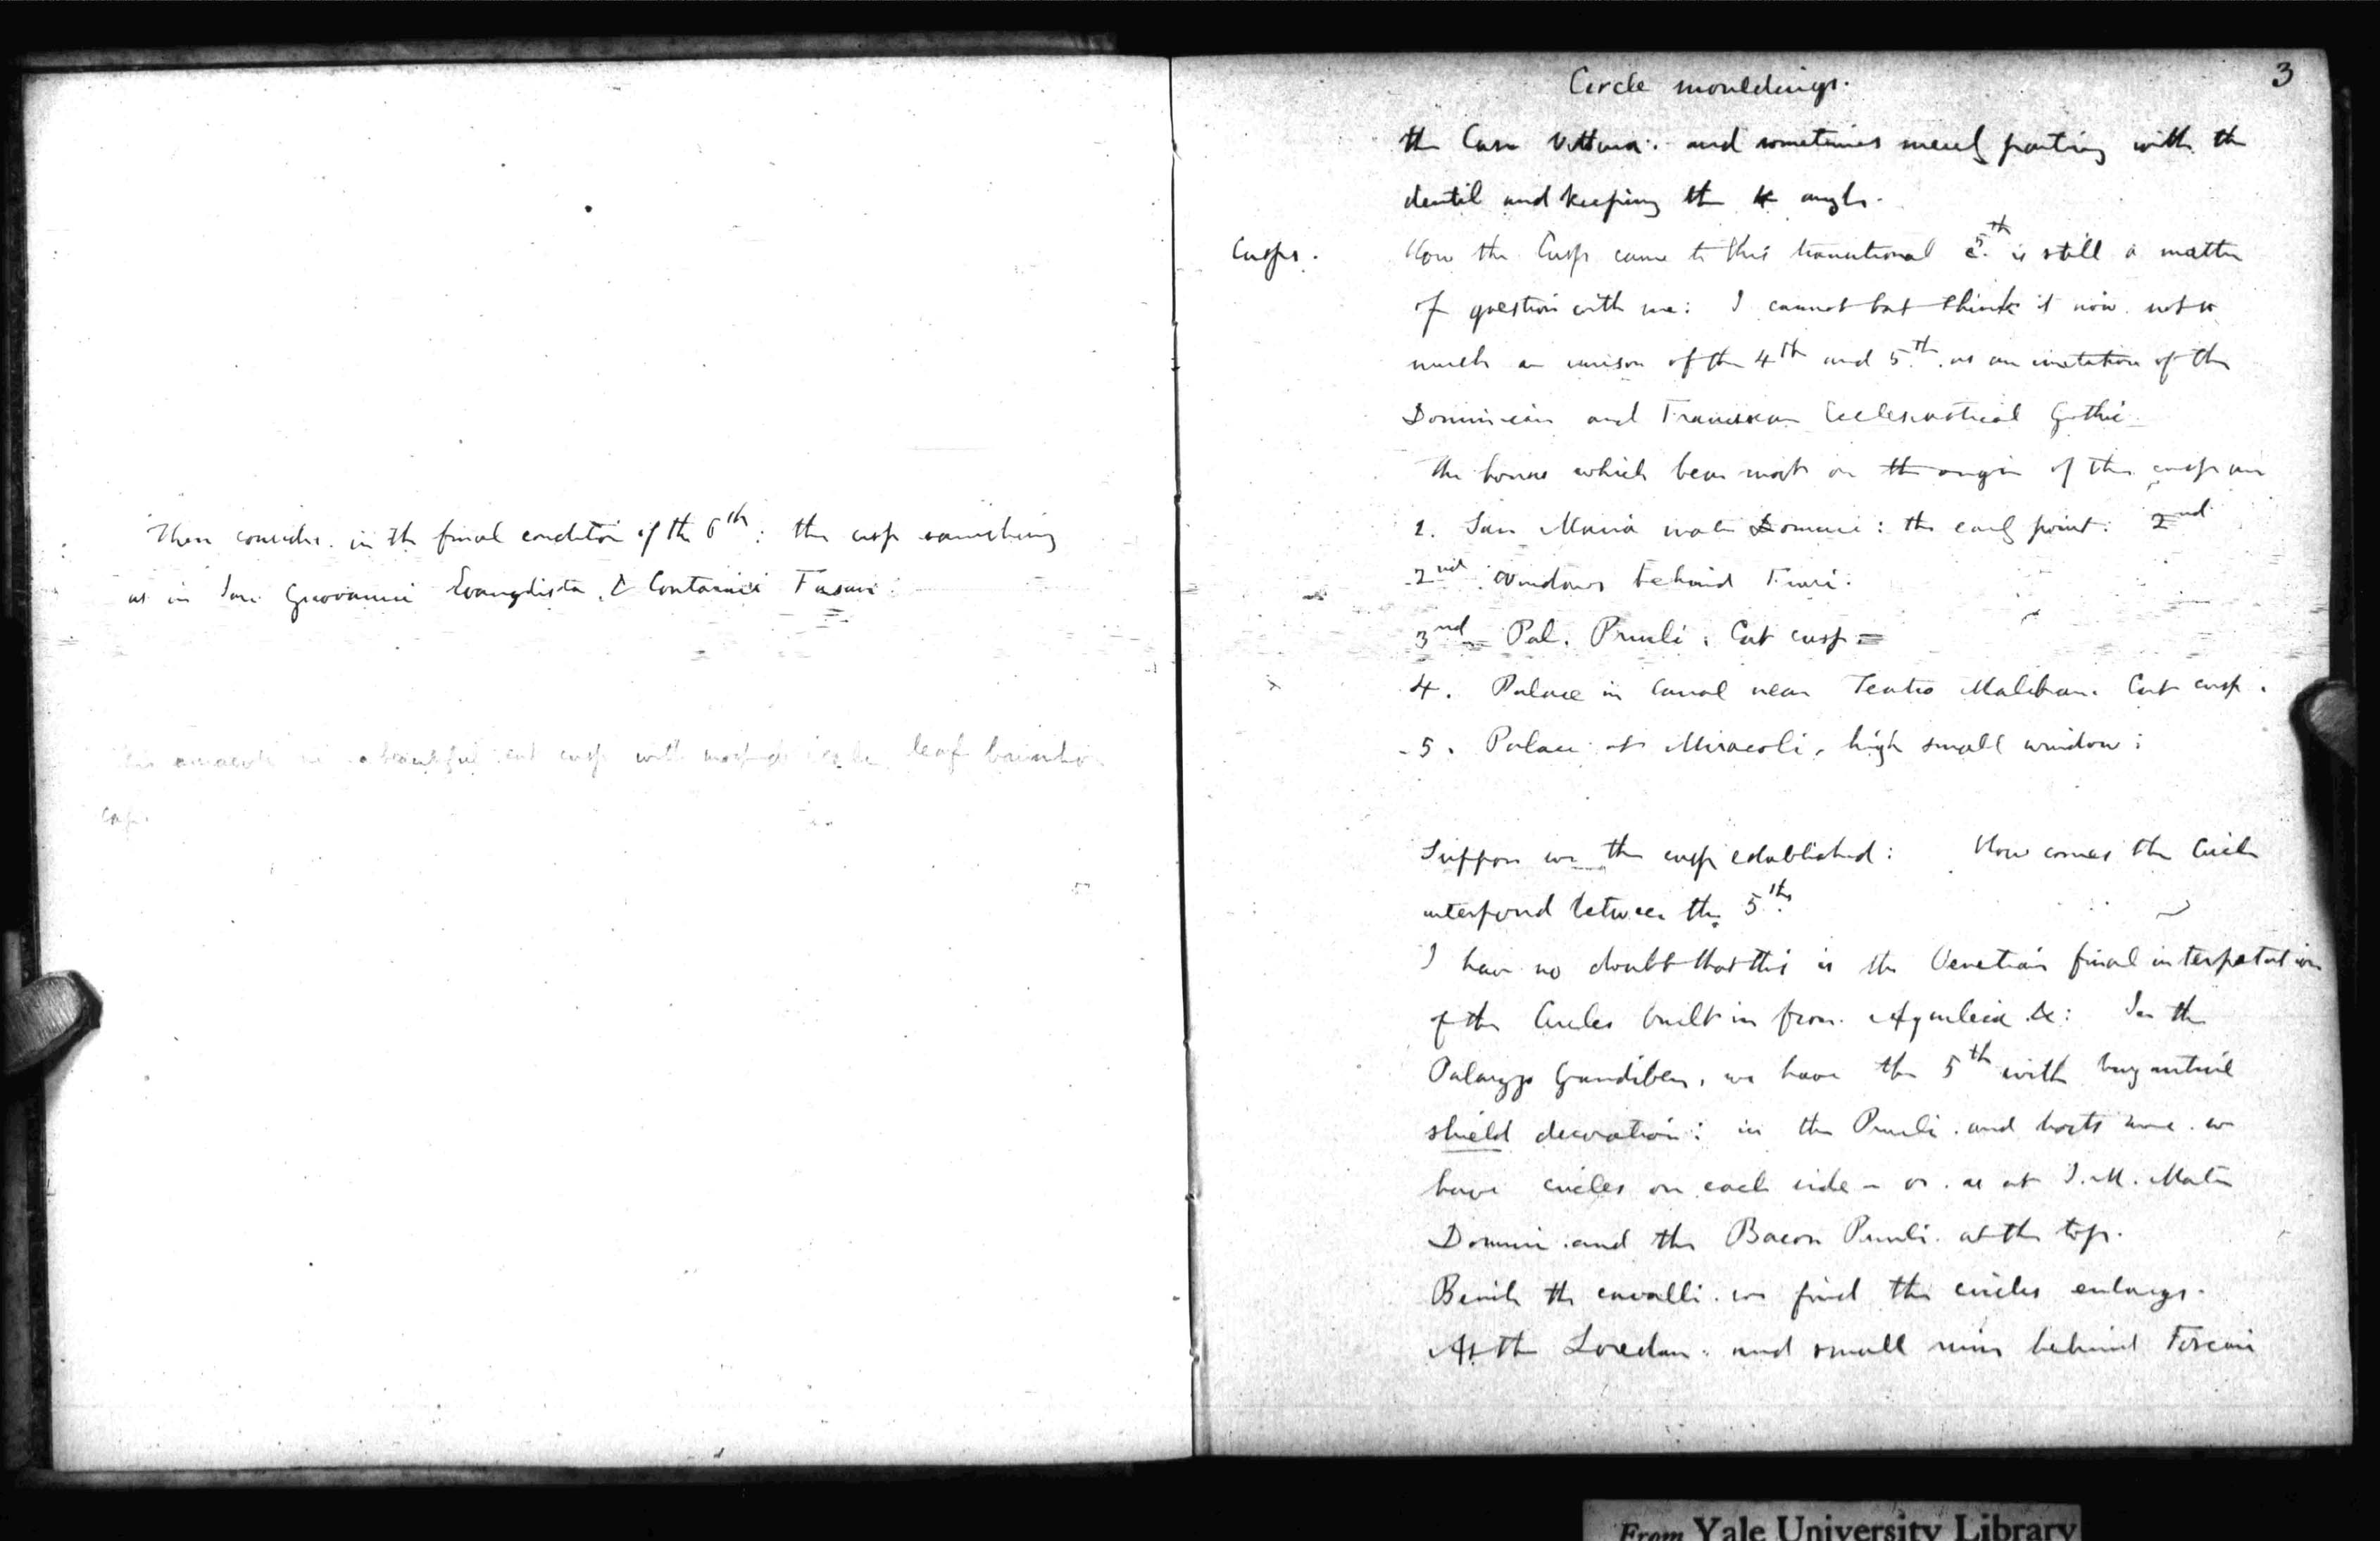 Then consider. in the final condition of the 6th: the cusp vanishing
as in San Giovanni Evangelista, & Contarini Fasan:
a beautiful cut cusp with leaf
cap.
3
Circle mouldings.
the Casa Vittura: and sometimes merely parting with the
dentil and keeping the angle.
Cusps. How the Cusp came to this transitional 5th is still a matter
of question with me: I cannot but think it now not so
much an unison of the 4th and 5th. as an imitation of the
Dominican and Franciscan Ecclesiastical Gothic
The houses which bear most on the origin of the cusp are
1. San Maria mater Domini: the early point: 2nd
2nd Windows behind Frari:
3nd Pal. Priuli: Cut cusp =
4. Palace in Canal near Teatro Malibran. Cut cusp.
5. Palace at Miracoli, high small window:
Suppose we the cusp established: How comes the Circle
interposed between the 5ths
I have no doubt that this is the Venetian final interpretation
of the Circles built in from Aquileia &c: In the
Palazzo Grandiben, we have the 5th with byzantine
shield decoration: in the Priuli. and we
have circles on each side - or. as at S.M. Mater
Domini. and the Bacon Priuli. at the top.
Beside the cavalli. we find the circles enlarge.
At the Loredan: and small ruin behind Foscari
From Yale University Library